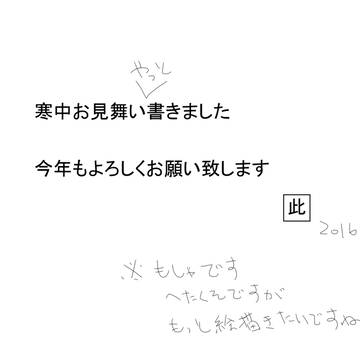 やっと
寒中お見舞い書きました
今年もよろしくお願い致します
此
2016
※もしゃです
へたくそですが
もっと絵描きたいですね